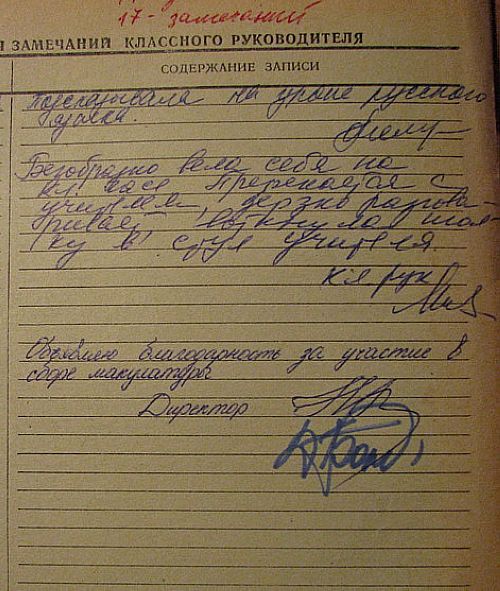 17 - замечаний
Я ЗАМЕЧАНИЙ КЛАССНОГО РУКОВОДИТЕЛЯ
СОДЕРЖАНИЕ ЗАПИСИ
Подсказывала на уроке русского
языка.
Безобразно вела себя на
кл. часе. Пререкается с
учителем, дерзко разгова-
ривает, воткнула игол-
ку в стул учителя.
кл рук
Объявляю благодарность за участие в
сборе макулатуры
Директор